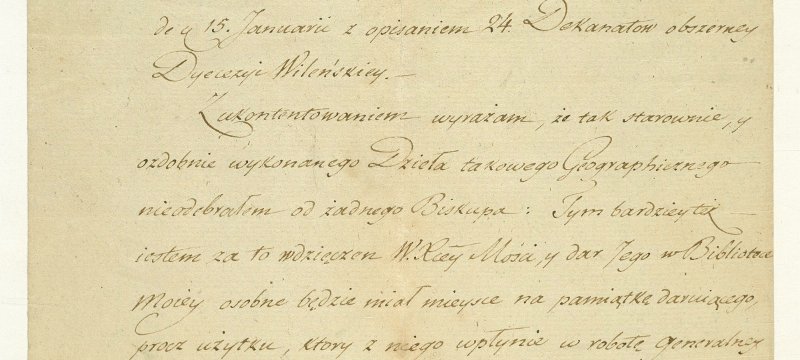 de y 15. Januarii z opisaniem 24. Dekanatow obszerney
Dyecezyi Wileńskiey. –
Z ukontentowaniem wyrażam, że tak starownie, y
ozdobnie wykonanego Dzieła takowego Geographicznego
nieodebrałem od żadnego Biskupa: Tym bardziey też
iestem za to wdzięczen W. Xcey Mości, y dar Jego w Bibliotece
Moiey osobne będzie miał mieysce na pamiątkę daruiącego,
procz użytku, ktory z niego wpłynie w robotę generalney